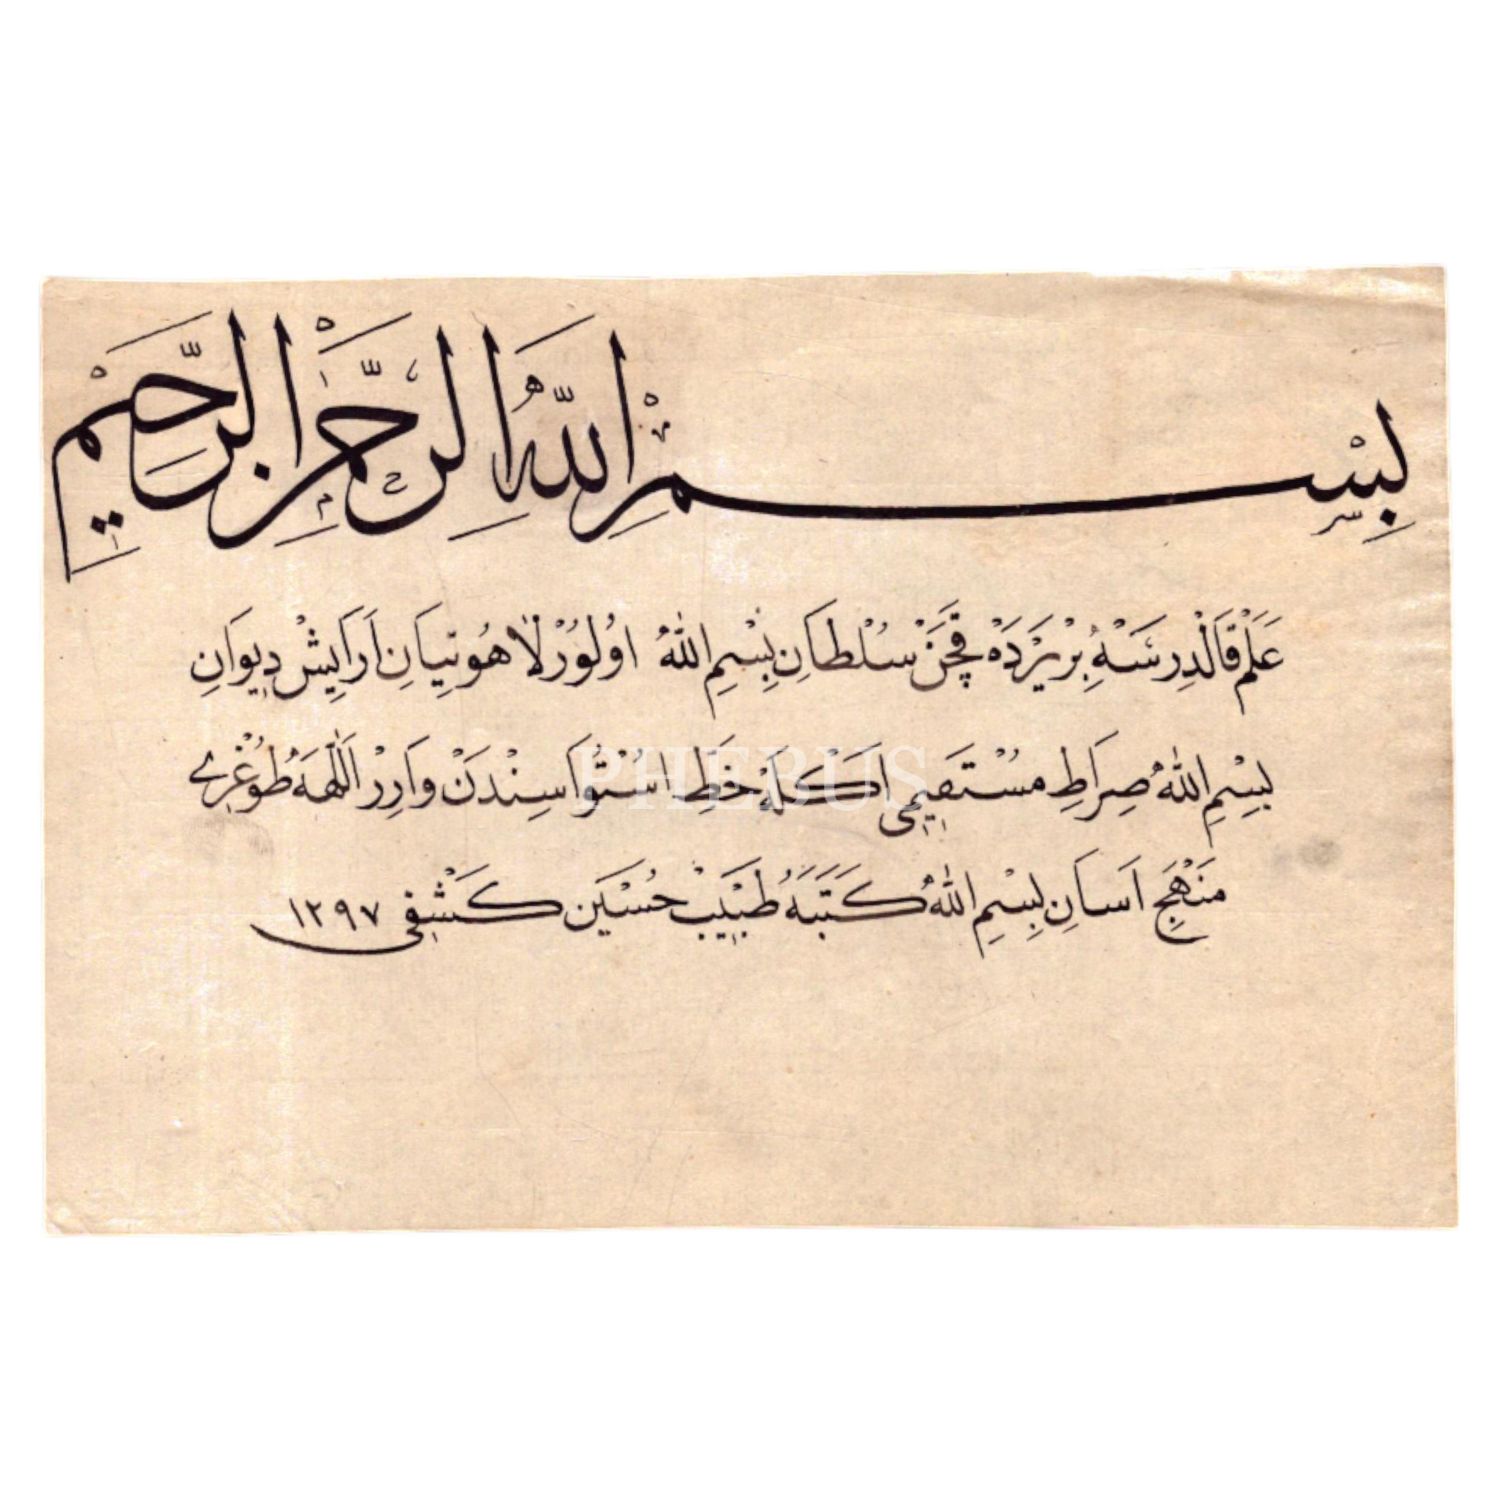 بِسْمِ اللّٰهِ الرَّحْمٰنِ الرَّحِيْمِ
عَلَمْ قَالْدِرْسَهْ بِرْ يَرْدَهْ قَچَنْ سُلْطَانِ بِسْمِ اللّٰهْ اوُلوُرْ لَاهُوتِيَانِ اَرَايِشْ دِيوَانِ
بِسْمِ اللّٰهْ صِرَاطِ مُسْتَقِيمِى اَكْلَهْ خَطِّ اسْتُوَاسِنْدَنْ وَارِرْ اَللّٰهَهْ طُوغْرِى
PHEBUS
مَنْهَجِ اَسَانِ بِسْمِ اللّٰهْ كَتَبَهُ طَبِيبْ حُسَيْن كَشْفِى ١٢٩٧